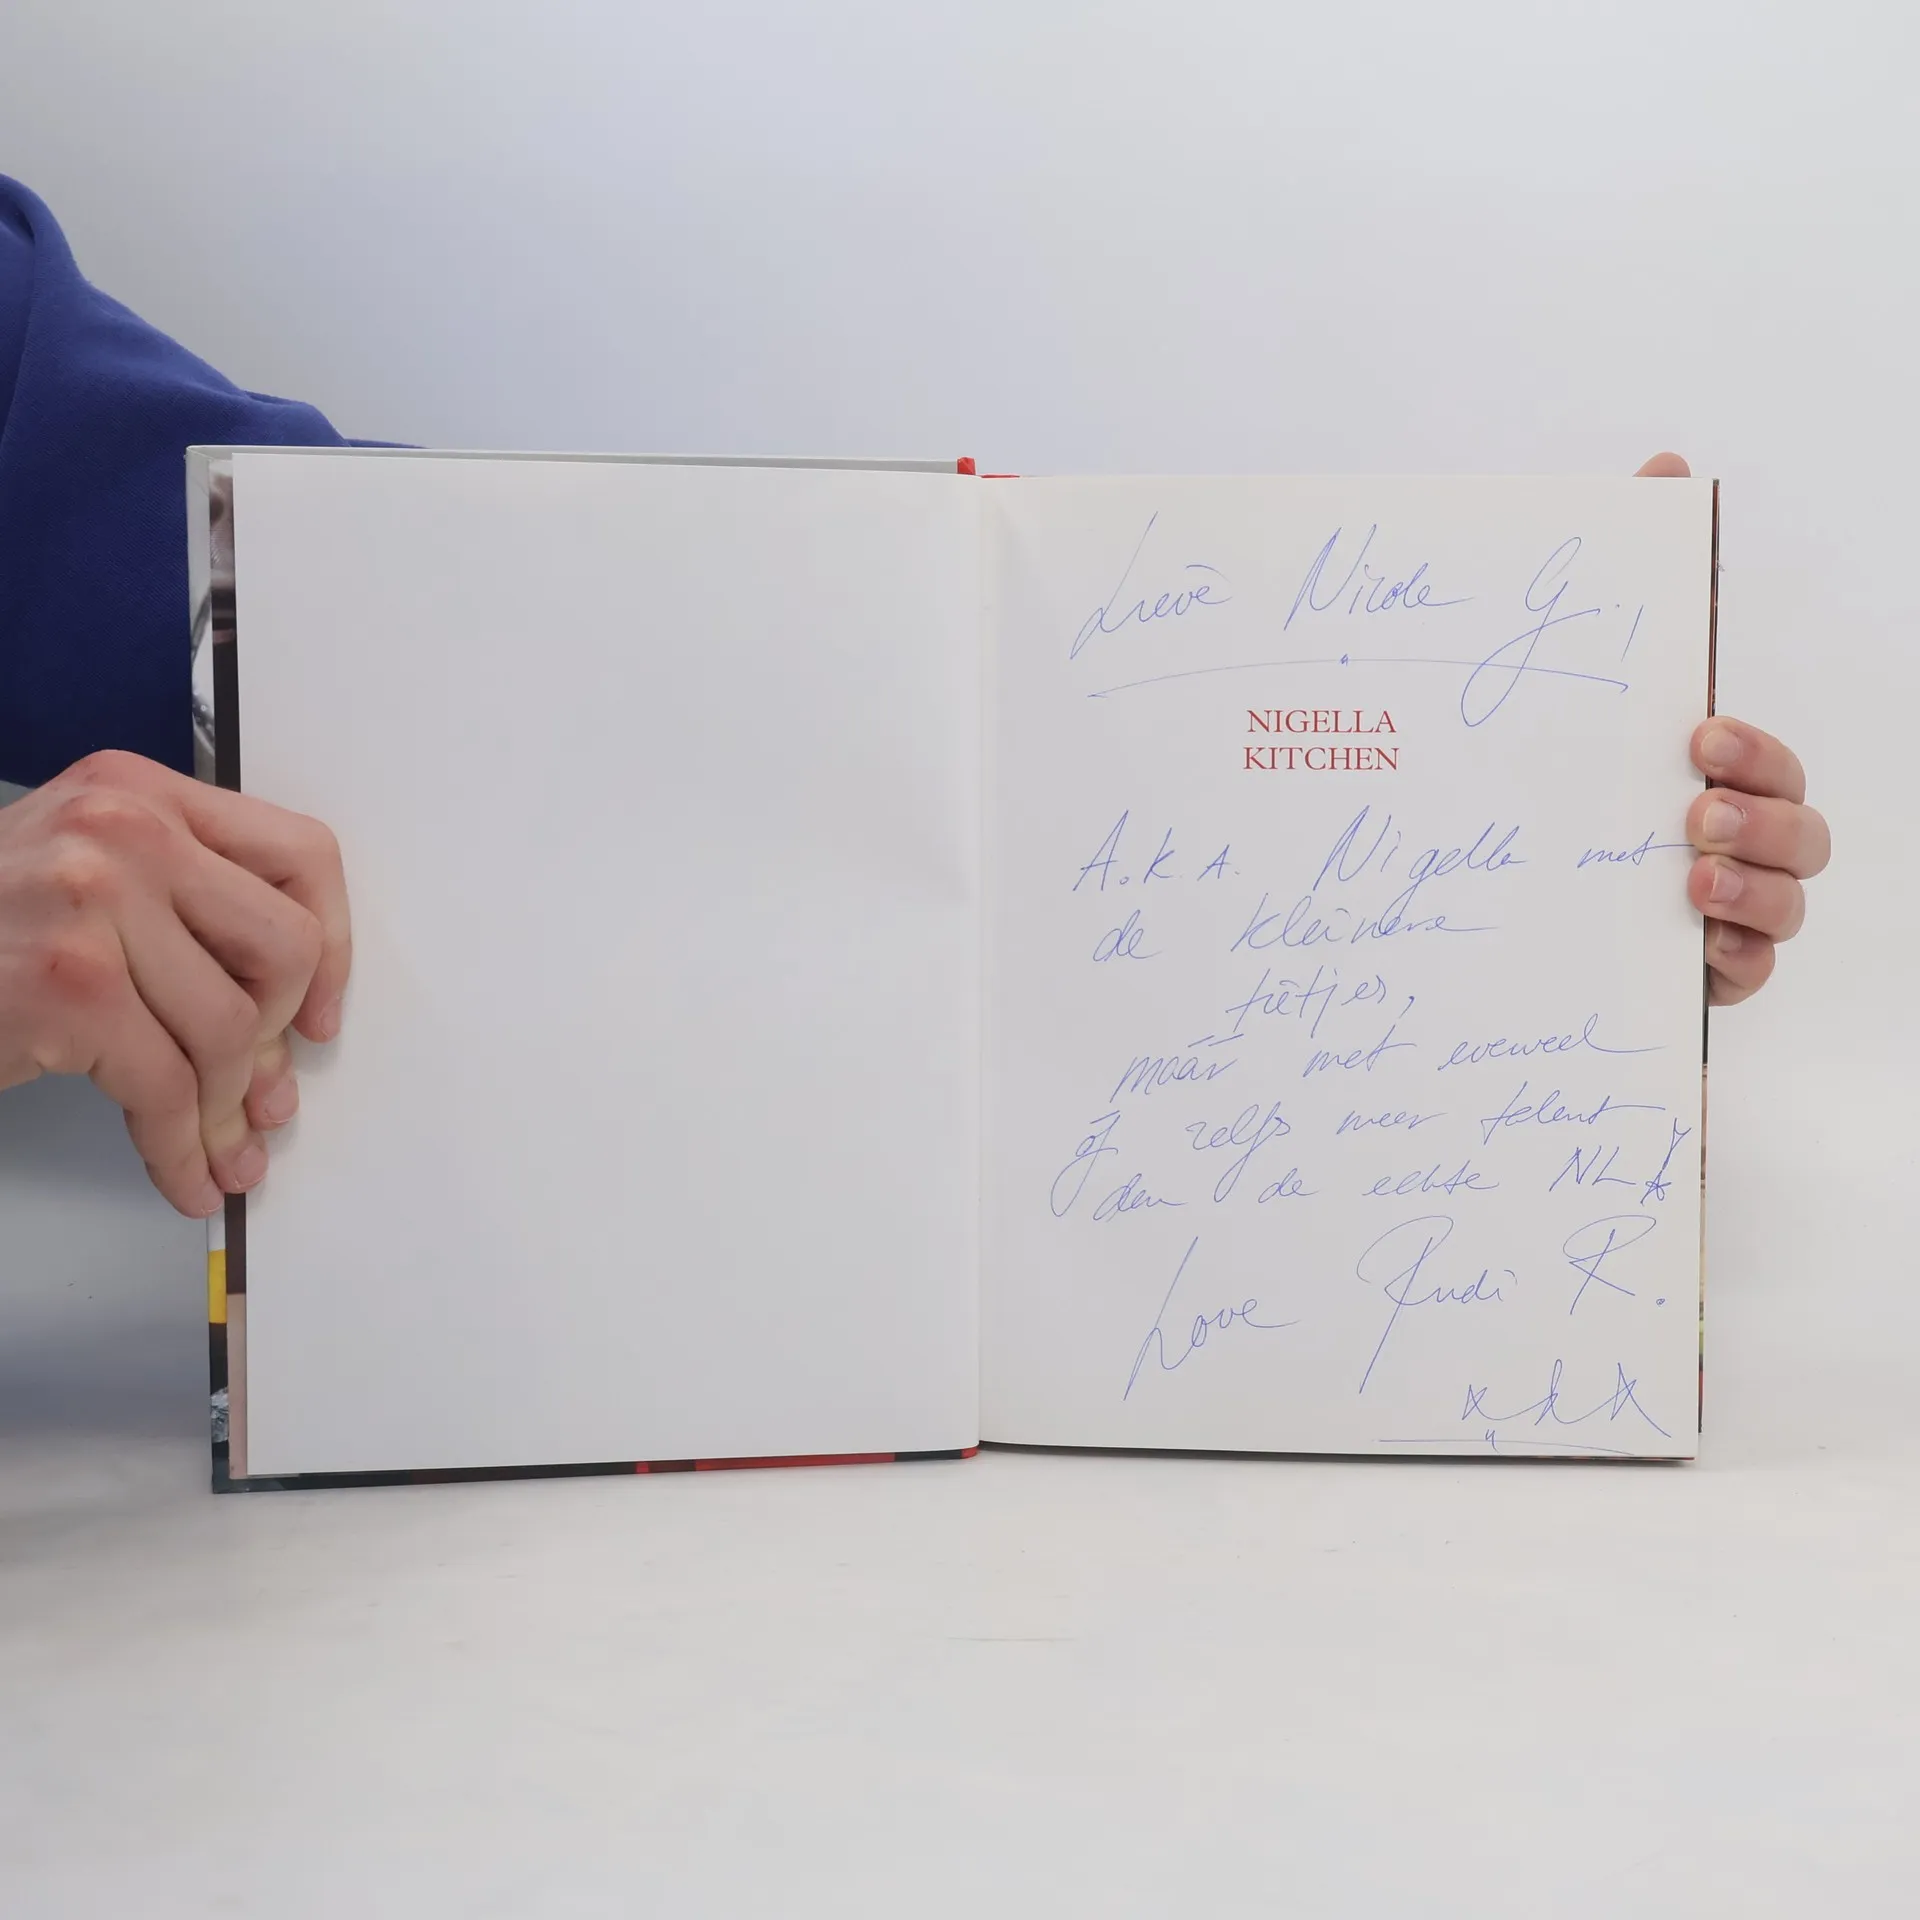 Lieve Nicole G.!
NIGELLA
KITCHEN
A.K.A. Nigella met
de kleinere
tietjes,
máár met eveveel
óf zelfs meer talent
dan de echte NL
Love Rudi R.
xxx